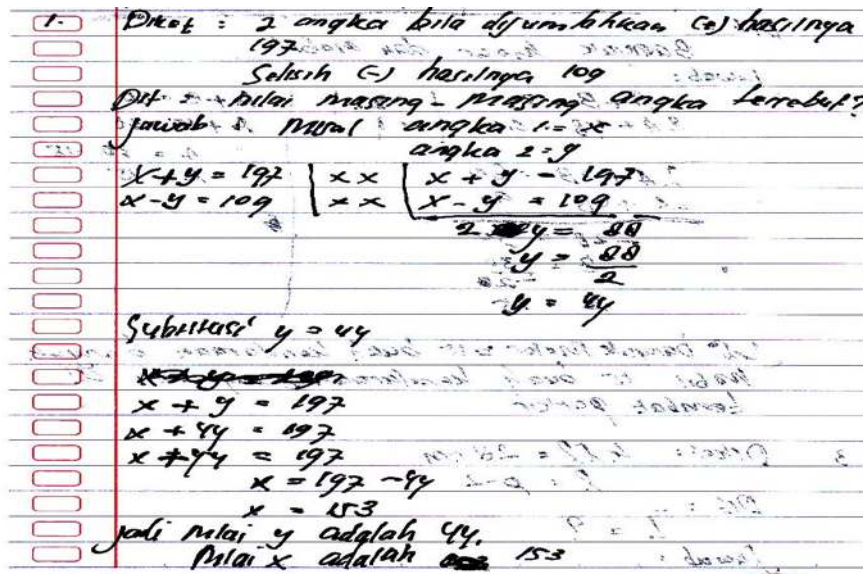 1. Diket : 2 angka bila dijumlahkan (+) hasilnya
197
Selisih (-) hasilnya 109
Dit : nilai masing-masing angka tersebut?
Jawab : Misal angka 1 = x
angka 2 = y
x + y = 197 | x x | x + y = 197
x - y = 109 | x x | x - y = 109
2 y = 88
y = 88
2
y = 44
Subtitusi y = 44
x + y = 197
x + 44 = 197
x + 44 = 197
x = 197 - 44
x = 153
Jadi nilai y adalah 44.
Nilai x adalah 153